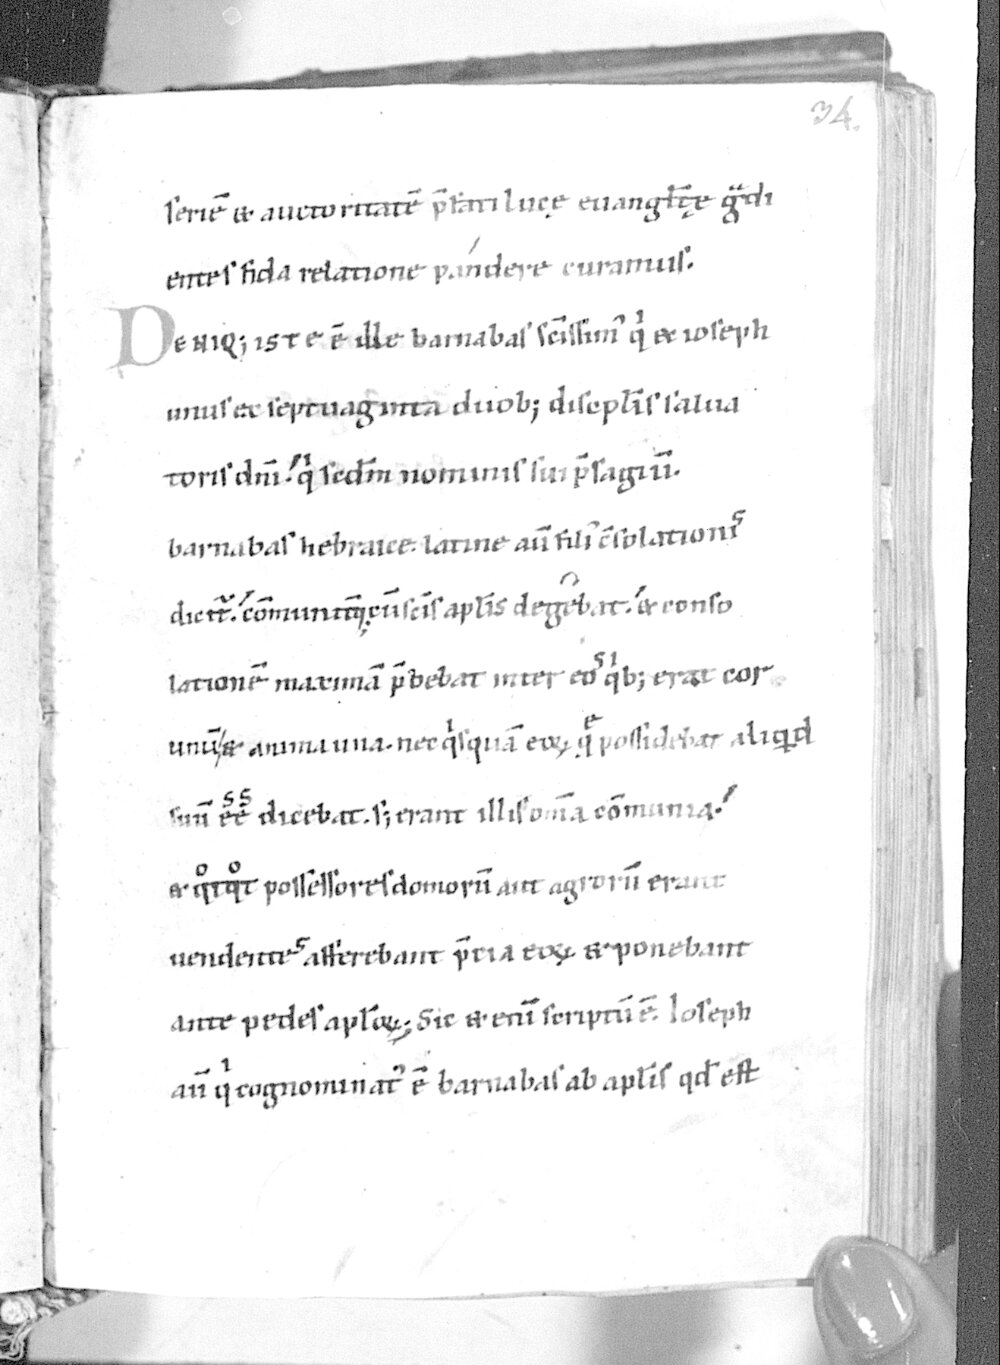 34.
seriē & auctoritatē p̄fati lucę euanglc̄ę gͣdi
entes fida relatione pandere curamus.
DENIQ; ISTE ē ille barnabas sc̄issim᾽ qͥ & ioseph
unus ex septuaginta duob; discipl̄is salua
toris dn̄i. qͥ scdm̄ nominis sui p̄sagiū.
barnabas hebraice. latine aū fili᾽ c̄solationiˢ
dicit᷒. cōmunitq̄; cū sc̄is apl̄is degebat. & conso
lationē maximā p̄bebat inter eoˢ qͥb; erat cor
unū & anima una. nec qͥsquā eoꝝ q̄ᵉ possidebat aliqd
suū ēˢēˢ dicebat. s; erant illis om̄ia cōmunia.
& qͦtqͦt possessores domorū aut agrorū erant
uendenteˢ afferebant p̄cia eoꝝ & ponebant
ante pedes apl̄oꝝ; Sic & enī scriptū ē. Ioseph
aū qͥ cognominat᾽ ē barnabas ab apl̄is qd̄ est